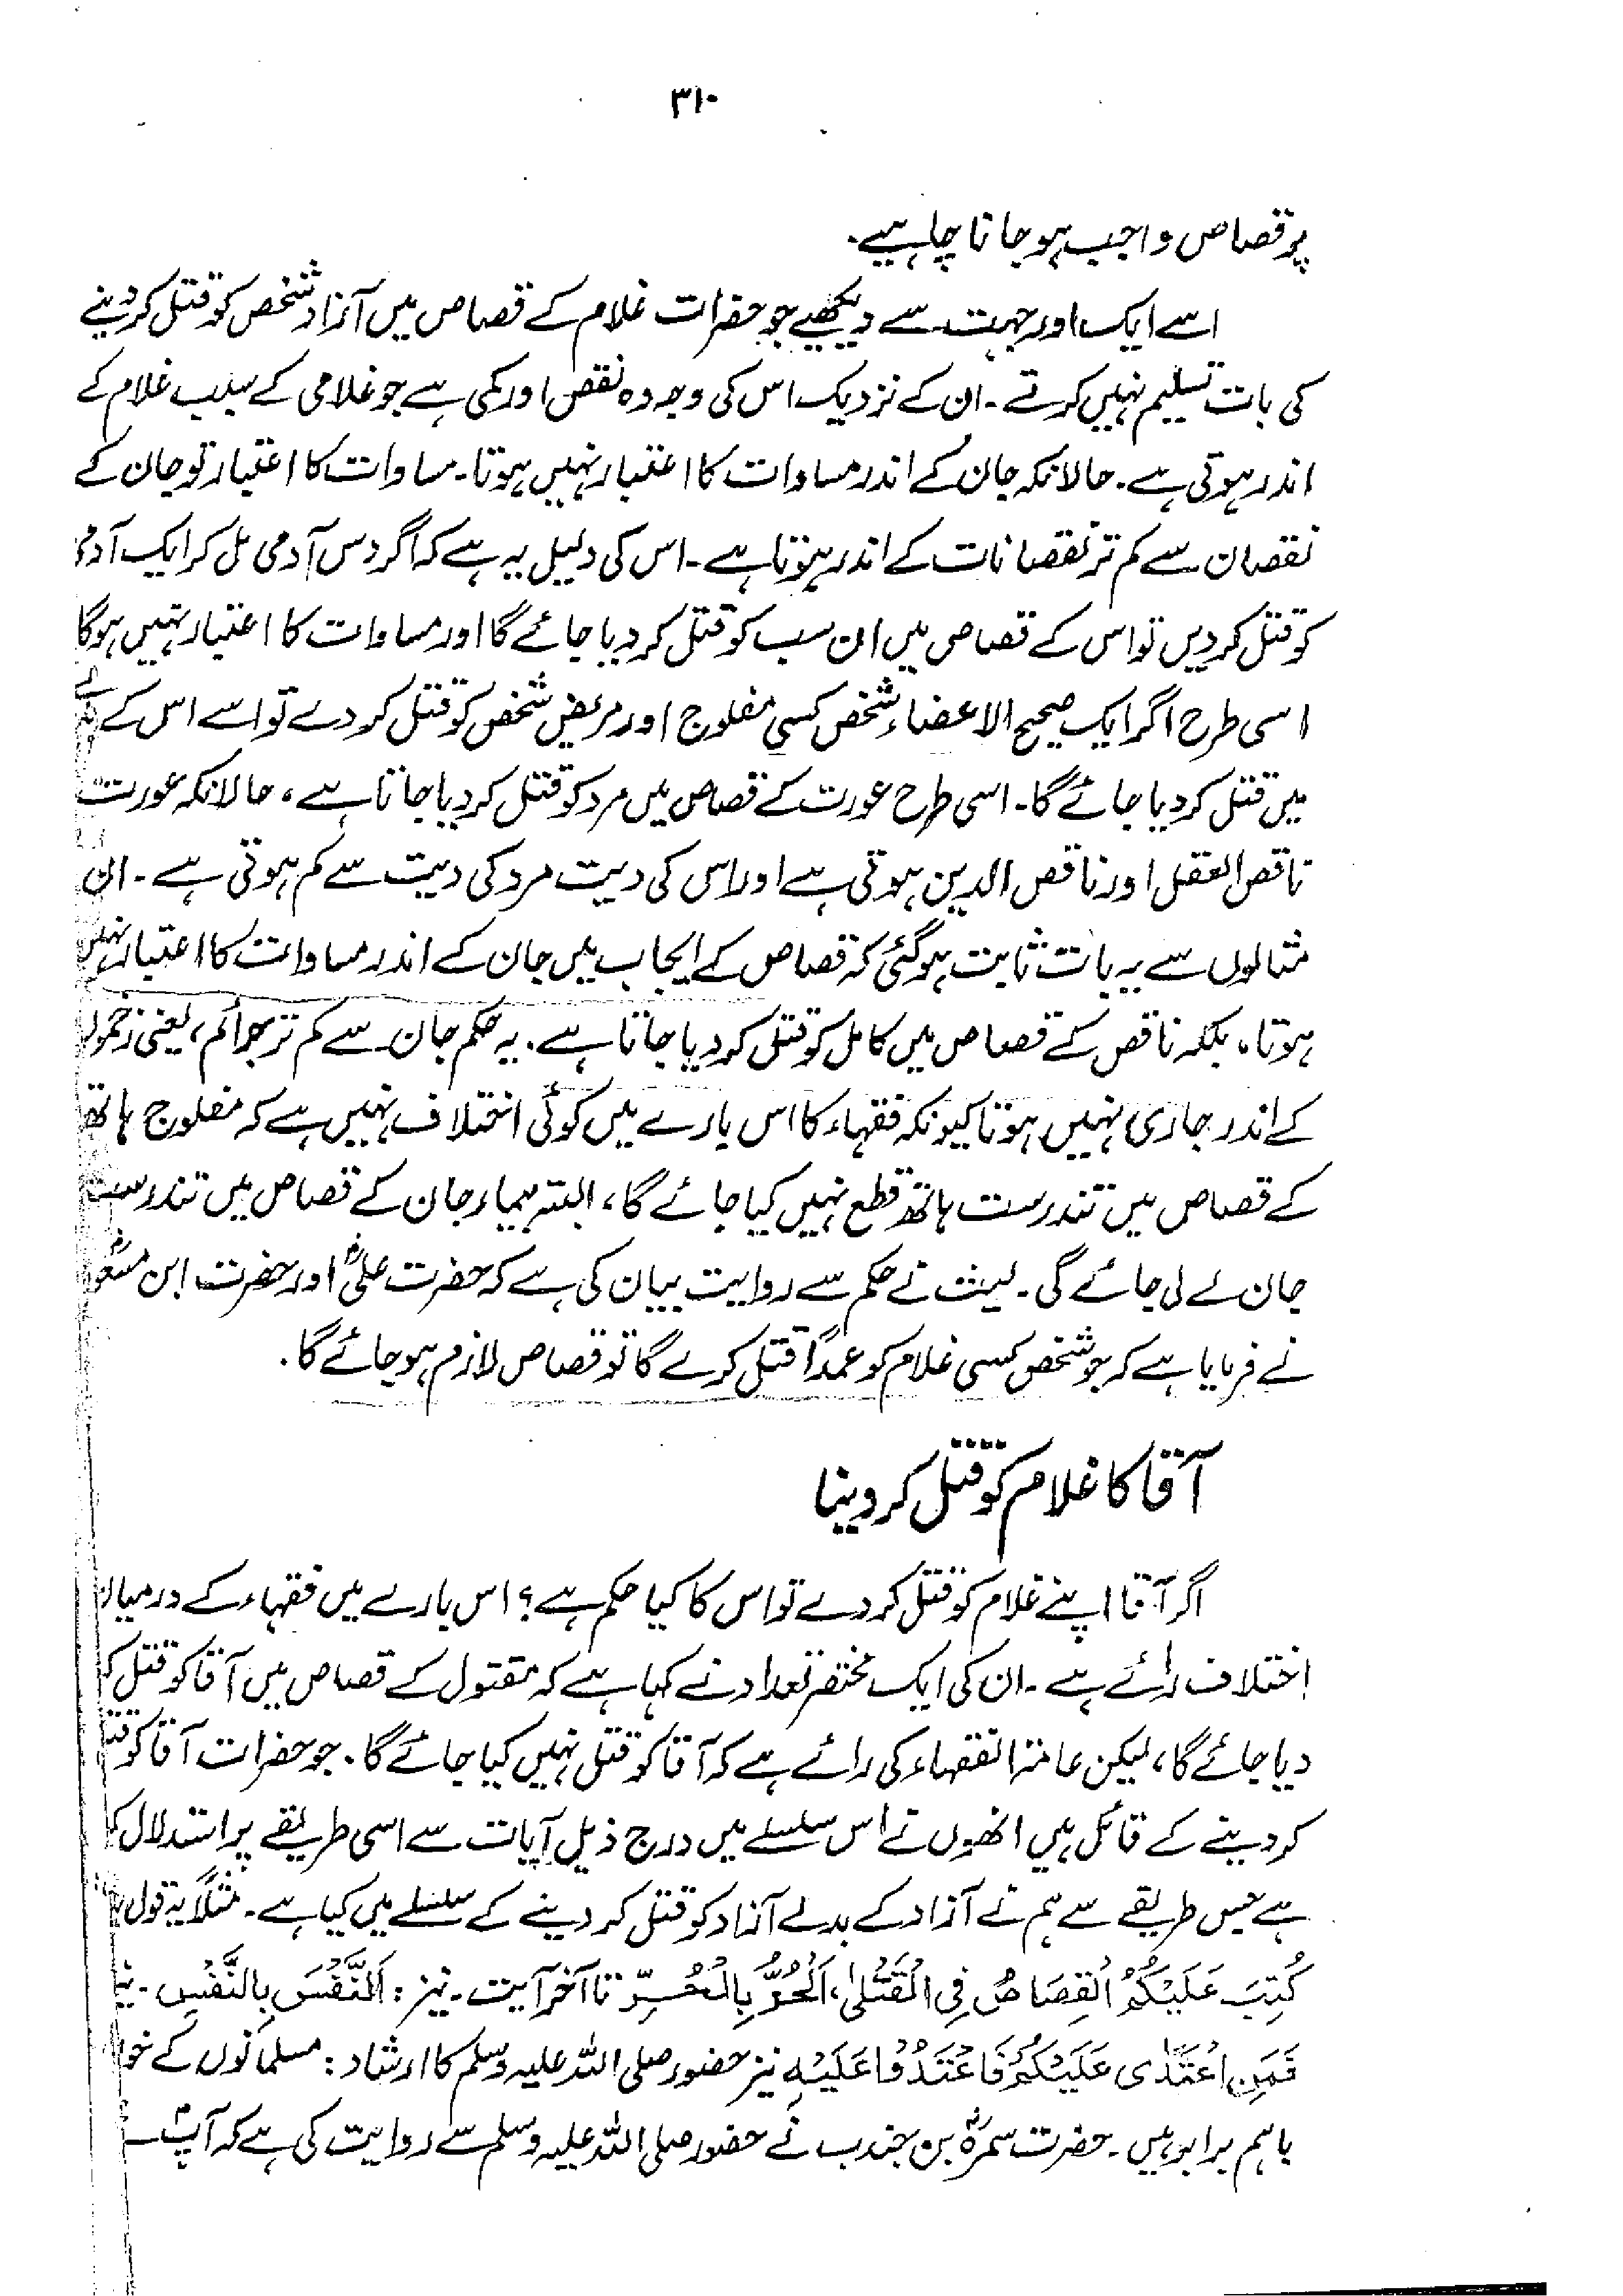 ۳۱۰
پر قصاص واجب ہو جانا چاہیے۔
اسے ایک اور جہت سے دیکھیے جو حضرات غلام کے قصاص میں آزاد شخص کو قتل کر دینے
کی بات تسلیم نہیں کرتے۔ ان کے نزدیک اس کی وجہ وہ نقص اور کمی ہے جو غلامی کے سبب غلام کے
اندر ہوتی ہے۔ حالانکہ جان کے اندر مساوات کا اعتبار نہیں ہوتا۔ مساوات کا اعتبار تو جان کے
نقصان سے کم تر نقصانات کے اندر ہوتا ہے۔ اس کی دلیل یہ ہے کہ اگر دس آدمی مل کر ایک آدمی
کو قتل کر دیں تو اس کے قصاص میں ان سب کو قتل کر دیا جائے گا اور مساوات کا اعتبار نہیں ہوگا
اسی طرح اگر ایک صحیح الاعضاء شخص کسی مفلوج اور مریض شخص کو قتل کر دے تو اسے اس کے
میں قتل کر دیا جائے گا۔ اسی طرح عورت کے قصاص میں مرد کو قتل کر دیا جاتا ہے، حالانکہ عورت
ناقص العقل اور ناقص الدین ہوتی ہے اور اس کی دیت مرد کی دیت سے کم ہوتی ہے۔ ان
مثالوں سے یہ بات ثابت ہو گئی کہ قصاص کے ایجاب میں جان کے اندر مساوات کا اعتبار نہیں
ہوتا، بلکہ ناقص کے قصاص میں کامل کو قتل کر دیا جاتا ہے۔ یہ حکم جان سے کم تر جرائم، یعنی زخموں
کے اندر جاری نہیں ہوتا کیونکہ فقہاء کا اس بارے میں کوئی اختلاف نہیں ہے کہ مفلوج ہاتھ
کے قصاص میں تندرست ہاتھ قطع نہیں کیا جائے گا، البتہ بیمار جان کے قصاص میں تندرست
جان لے لی جائے گی۔ لیث نے حکم سے روایت بیان کی ہے کہ حضرت علیؓ اور حضرت ابن مسعود
نے فرمایا ہے کہ جو شخص کسی غلام کو عمداً قتل کرے گا تو قصاص لازم ہو جائے گا۔
آقا کا غلام کو قتل کر دینا
اگر آقا اپنے غلام کو قتل کر دے تو اس کا کیا حکم ہے؟ اس بارے میں فقہاء کے درمیان
اختلاف رائے ہے۔ ان کی ایک مختصر تعداد نے کہا ہے کہ مقتول کے قصاص میں آقا کو قتل کر
دیا جائے گا، لیکن عامۃ الفقہاء کی رائے ہے کہ آقا کو قتل نہیں کیا جائے گا۔ جو حضرات آقا کو
کر دینے کے قائل ہیں انھوں نے اس سلسلے میں درج ذیل آیات سے اسی طریقے پر استدلال
ہے جس طریقے سے ہم نے آزاد کے بدلے آزاد کو قتل کر دینے کے سلسلے میں کیا ہے۔ مثلاً یہ قول
کُتِبَ عَلَیْکُمُ الْقِصَاصُ فِی الْقَتْلٰی، اَلْحُرُّ بِالْحُرِّ تا آخر آیت۔ نیز: اَلنَّفْسَ بِالنَّفْسِ۔
فَمَنِ اعْتَدٰی عَلَیْکُمْ فَاعْتَدُوْا عَلَیْهِ نیز حضور صلی اللہ علیہ وسلم کا ارشاد: مسلمانوں کے
باہم برابر ہیں۔ حضرت سمرہؓ بن جندب نے حضور صلی اللہ علیہ وسلم سے روایت کی ہے کہ آپؐ